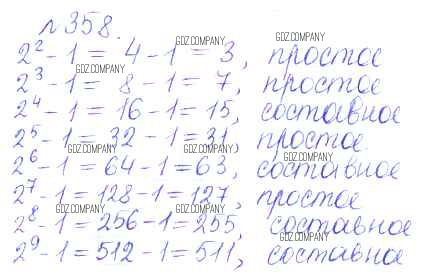 №358.
2² - 1 = 4 - 1 = 3, простое
2³ - 1 = 8 - 1 = 7, простое
2⁴ - 1 = 16 - 1 = 15, составное
2⁵ - 1 = 32 - 1 = 31, простое.
2⁶ - 1 = 64 - 1 = 63, составное
2⁷ - 1 = 128 - 1 = 127, простое
2⁸ - 1 = 256 - 1 = 255, составное
2⁹ - 1 = 512 - 1 = 511, составное
GDZ.COMPANY
GDZ.COMPANY
GDZ.COMPANY
GDZ.COMPANY
GDZ.COMPANY
GDZ.COMPANY
GDZ.COMPANY
GDZ.COMPANY
GDZ.COMPANY